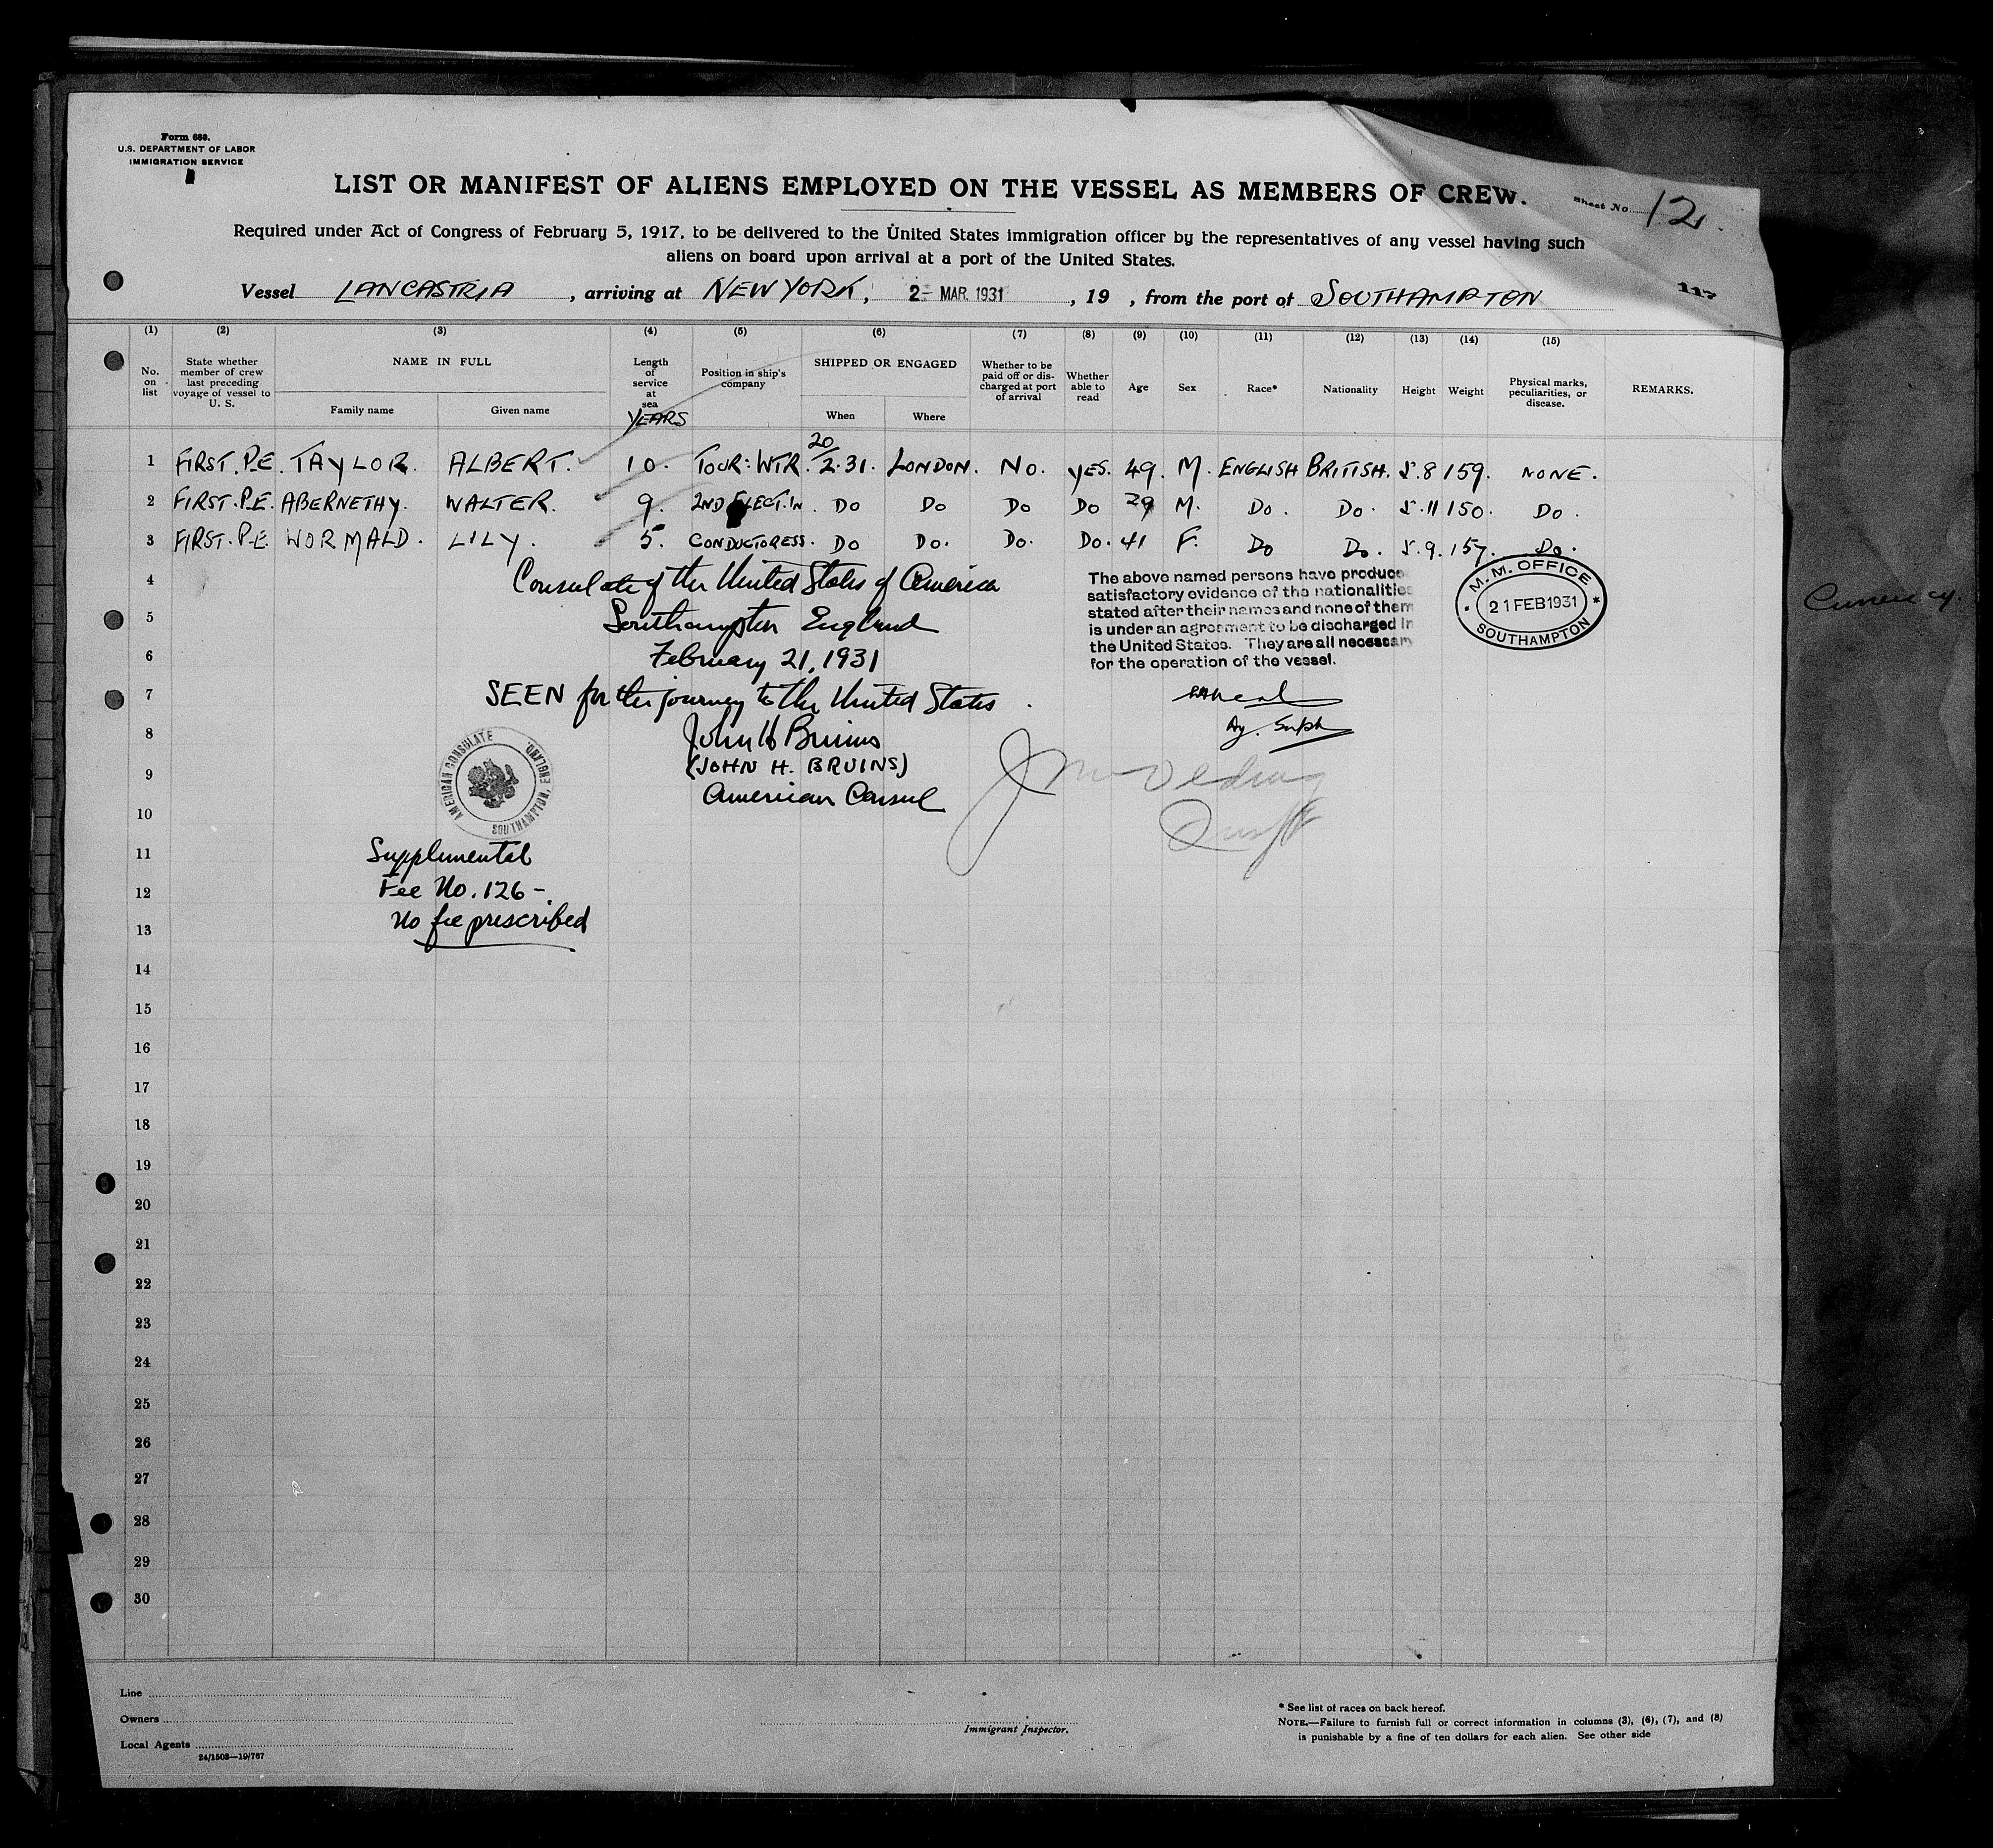 Form 680.
U.S. DEPARTMENT OF LABOR
IMMIGRATION SERVICE
LIST OR MANIFEST OF ALIENS EMPLOYED ON THE VESSEL AS MEMBERS OF CREW.
Sheet No. 12.
Required under Act of Congress of February 5, 1917, to be delivered to the United States immigration officer by the representatives of any vessel having such
aliens on board upon arrival at a port of the United States.
117
Vessel LANCASTRIA, arriving at NEW YORK, 2- MAR. 1931, 19 , from the port of SOUTHAMPTON
(1) (2) (3) (4) (5) (6) (7) (8) (9) (10) (11) (12) (13) (14) (15)
No. on list
State whether member of crew last preceding voyage of vessel to U. S.
NAME IN FULL
Family name
Given name
Length of service at sea
YEARS
Position in ship's company
SHIPPED OR ENGAGED
When
Where
Whether to be paid off or discharged at port of arrival
Whether able to read
Age
Sex
Race*
Nationality
Height
Weight
Physical marks, peculiarities, or disease.
REMARKS.
1 FIRST. P.E. TAYLOR. ALBERT. 10. TOUR: WTR. 20/2.31. LONDON. NO. YES. 49. M. ENGLISH BRITISH. 5.8 159. NONE.
2 FIRST. P.E. ABERNETHY. WALTER. 9. 2ND ELECT.IN. DO DO DO DO 29 M. DO. DO. 5.11 150. DO.
3 FIRST. P.E. WORMALD. LILY. 5. CONDUCTORESS. DO DO. DO. DO. 41 F. DO DO. 5.9. 157. DO.
4
5
6
7
8
9
10
11
12
13
14
15
16
17
18
19
20
21
22
23
24
25
26
27
28
29
30
Consulate of the United States of America
Southampton England
February 21, 1931
SEEN for the journey to the United States
John H Bruins
(JOHN H. BRUINS)
American Consul
AMERICAN CONSULATE
SOUTHAMPTON, ENGLAND.
Supplemental
Fee No. 126-
No fee prescribed
The above named persons have produce
satisfactory evidence of the nationalities
stated after their names and none of them
is under an agreement to be discharged in
the United States. They are all necessary
for the operation of the vessel.
Ag. Supt
M. M. OFFICE
21 FEB 1931
SOUTHAMPTON
Line
Owners
Local Agents
24/1503—19/767
Immigrant Inspector.
* See list of races on back hereof.
NOTE.—Failure to furnish full or correct information in columns (3), (6), (7), and (8)
is punishable by a fine of ten dollars for each alien. See other side